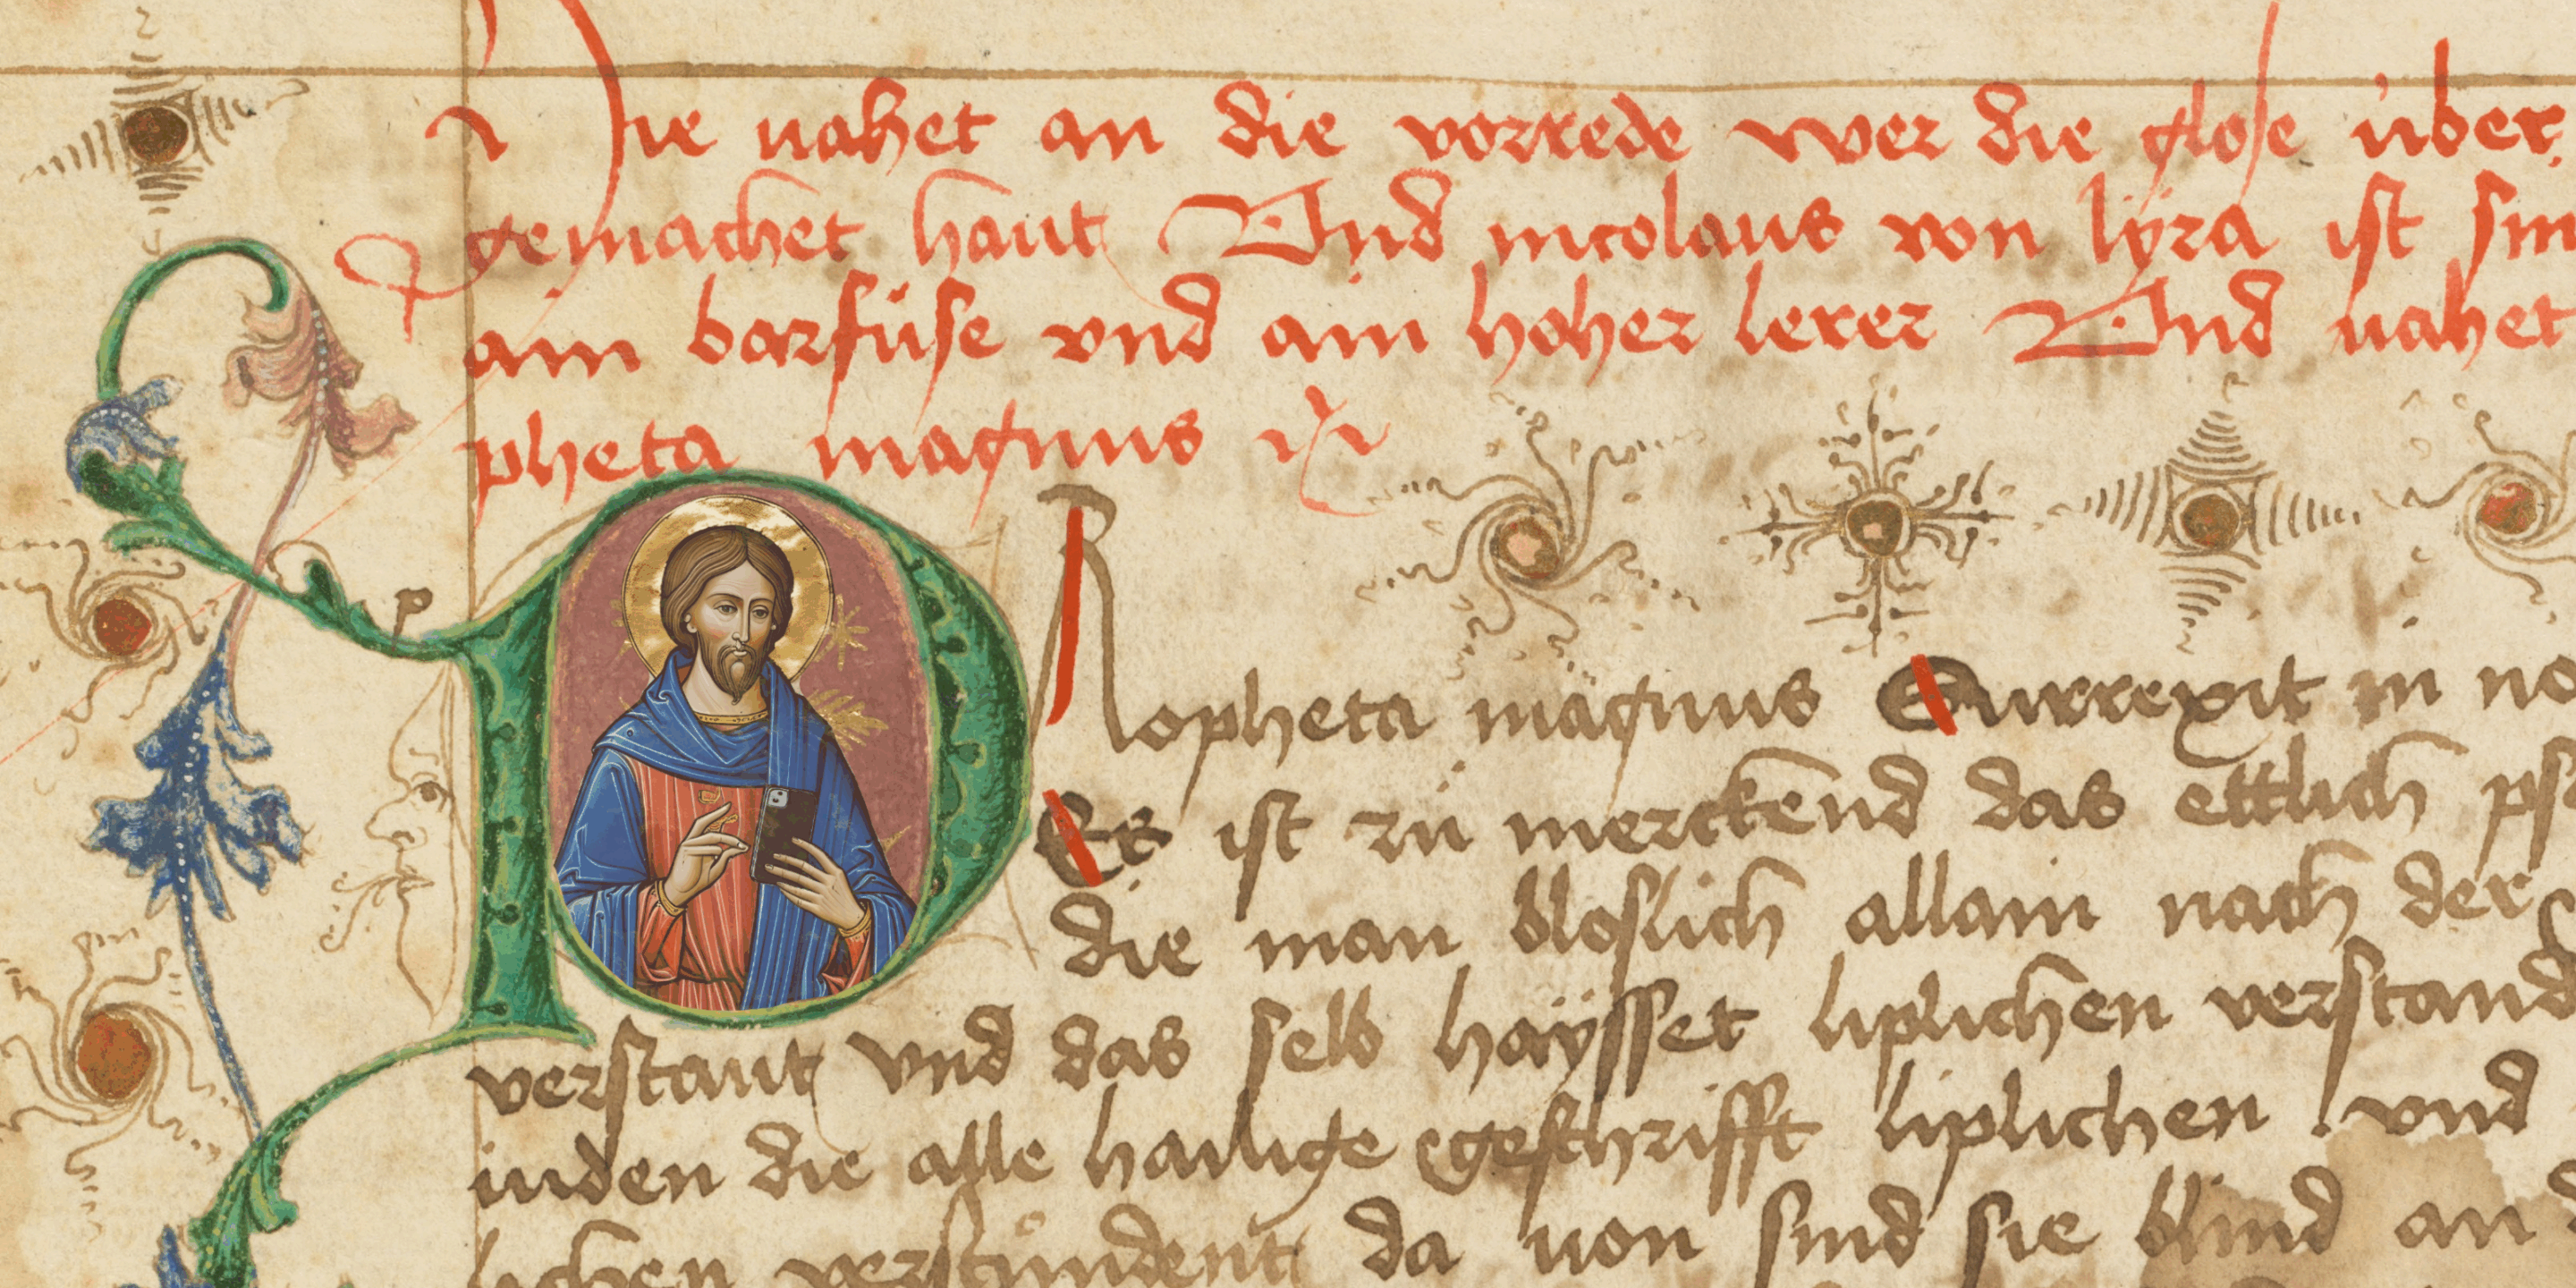 Hie vahet an die vorrede wer die glose über
gemachet haut Vnd nicolaus von lÿra ist sin
ain barfuͤse vnd ain hoher lerer Vnd vahet
pheta magnus
PRopheta magnus Surrexit in no
Es ist zuͤ merckend das ettlich ps
die man bloslich allain nach der
verstaut vnd das selb haÿsset liplichen verstand
iuden die alle hailige geschrifft liplichen vnd
lichen verstuͤndent da von sind sie blind an d